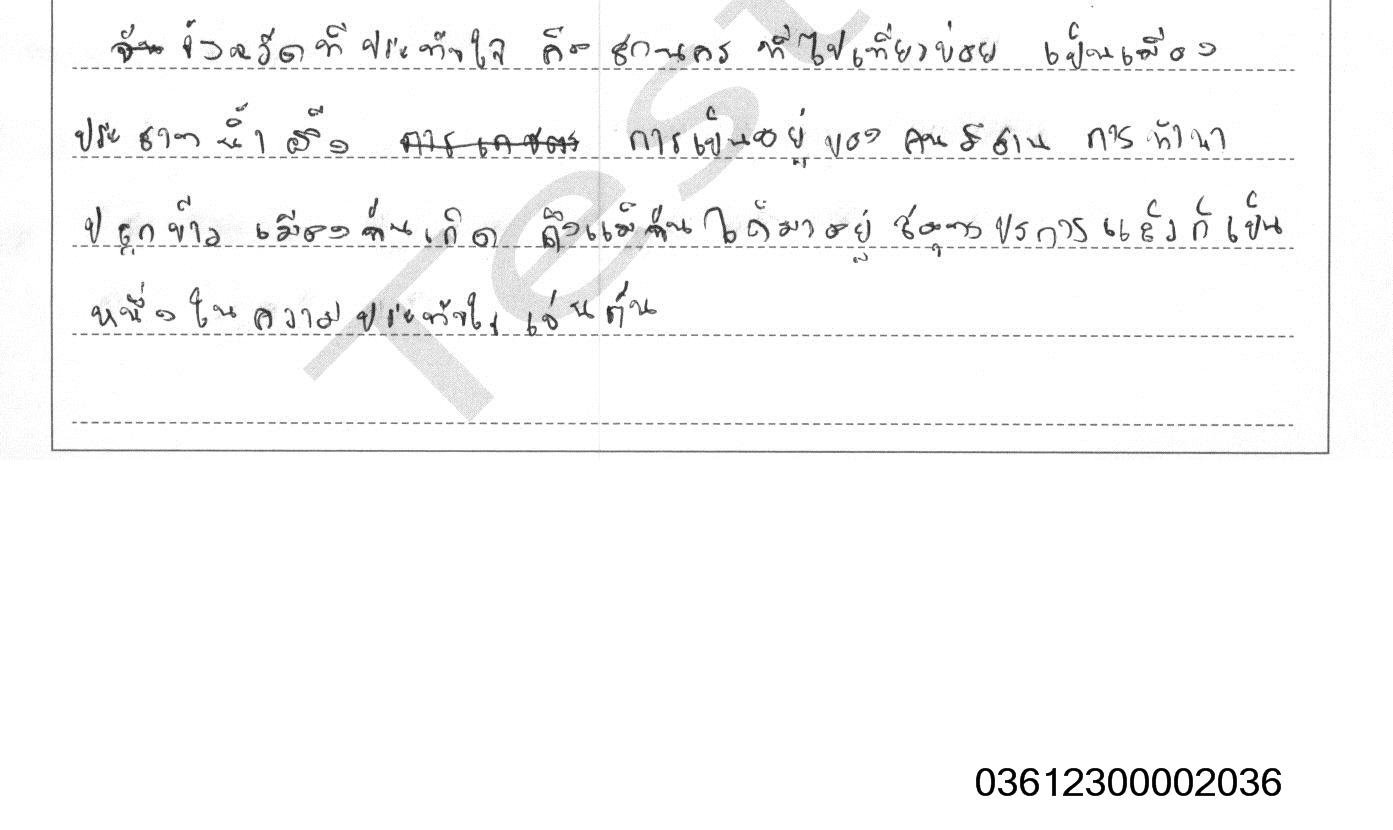 จังหวัดที่ประทับใจ คือ สกลนคร ที่ไปเที่ยวบ่อย เป็นเมือง
ประสาท น้ำ ผึ้ง การเป็นอยู่ ของ คนอีสาน การ ทำนา
ปลูกข้าว เมืองฉันเกิด ถึงแม้ฉันได้มาอยู่ สมุทรปราการ แล้วก็เป็น
หนึ่งใน ความประทับใจ เช่นกัน
Test
03612300002036